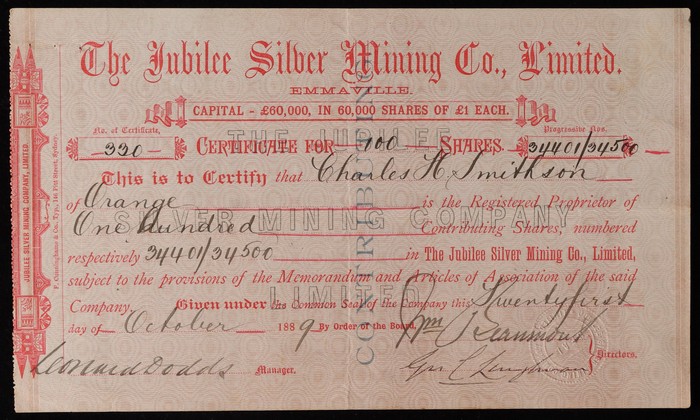 The Jubilee Silver Mining Co., Limited.
EMMAVILLE.
CAPITAL - £60,000, IN 60,000 SHARES OF £1 EACH.
No. of Certificate,
320
CERTIFICATE FOR 100 SHARES.
Progressive Nos.
34401/34500
This is to Certify that Charles H. Smithson
of Orange is the Registered Proprietor of
One Hundred Contributing Shares, numbered
respectively 34401/34500 in The Jubilee Silver Mining Co., Limited,
subject to the provisions of the Memorandum and Articles of Association of the said
Company. Given under the Common Seal of the Company this Twentyfirst
day of October 1889 By Order of the Board,
Wm Beaumont
Leonard Dodds Manager.
Geo C
Directors.
THE JUBILEE
SILVER MINING COMPANY
LIMITED
CONTRIBUTING
JUBILEE SILVER MINING COMPANY, LIMITED.
F. Cunninghame & Co., Typ., 146 Pitt Street, Sydney.